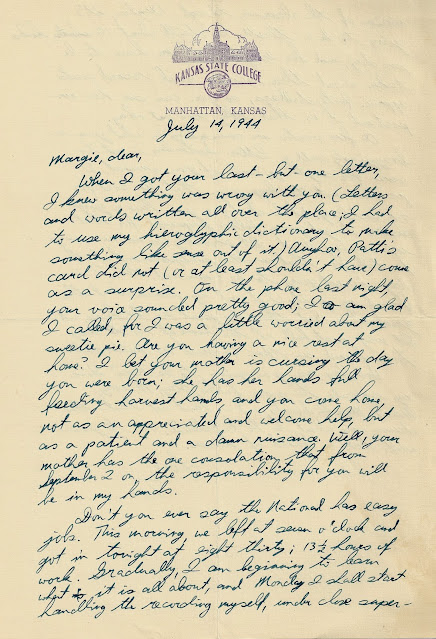 KANSAS STATE COLLEGE
MANHATTAN, KANSAS
July 14, 1944
Margie, dear,
When I got your last-but-one letter,
I knew something was wrong with you. (Letters
and words written all over the place; I had
to use my hieroglyphic dictionary to make
something like sense out of it) Anyhow, Patti's
card did not (or at least shouldn't have) come
as a surprise. On the phone last night
your voice sounded pretty good; I am glad
I called, for I was a little worried about my
sweetie pie. Are you having a nice rest at
home? I bet your mother is cursing the day
you were born; she has her hands full
feeding harvest hands and you come home,
not as an appreciated and welcome help but
as a patient and a damn nuisance. Well, your
mother has the one consolation that from
September 2 on the responsibility for you will
be in my hands.
Don't you ever say the National has easy
jobs. This morning we left at seven o'clock and
got in tonight at eight thirty; 13½ hours of
work. Gradually, I am beginning to learn
what it is all about, and Monday I shall start
handling the recording myself, under close super-